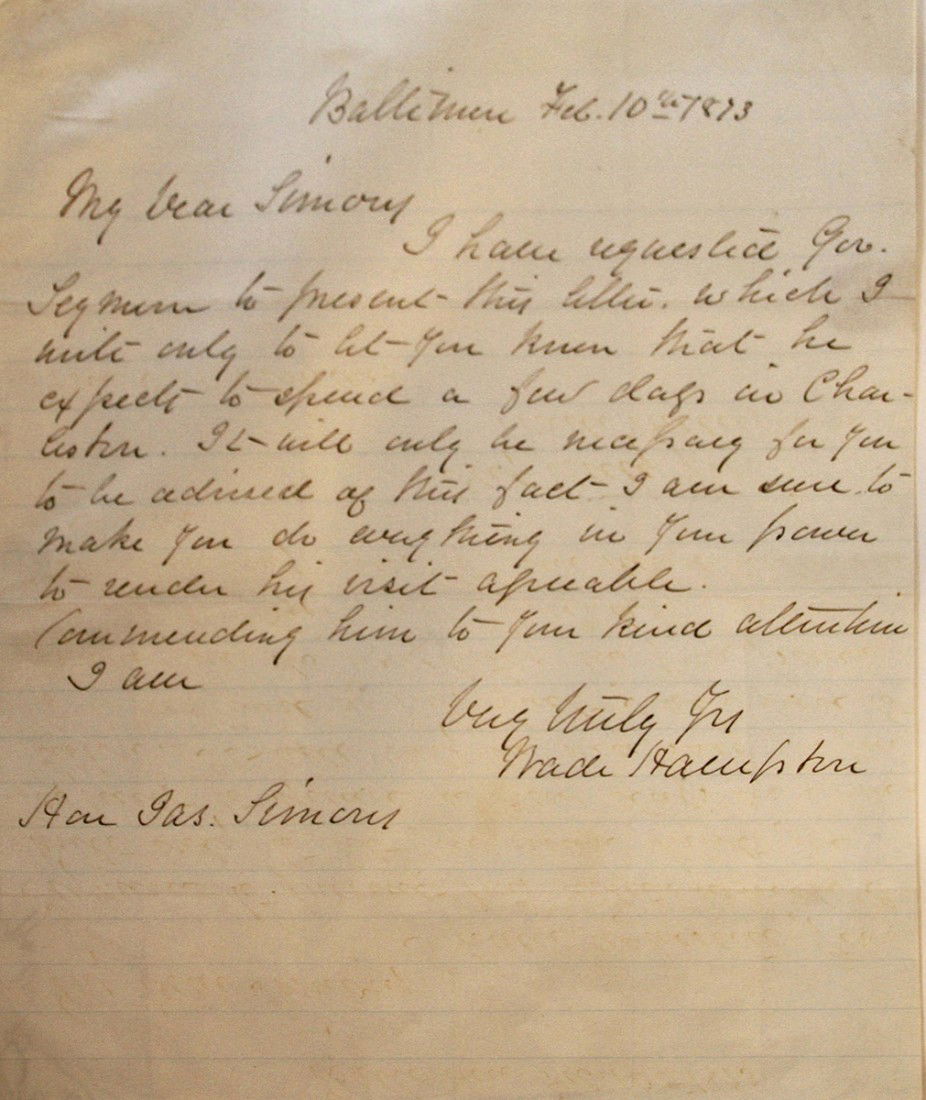 Baltimore Feb. 10th 1873
My Dear Simons
I have requested Gov.
Seymour to present this letter. which I
write only to let you know that he
expects to spend a few days in Char-
leston. It will only be necessary for you
to be advised of this fact I am sure to
make you do everything in your power
to render his visit agreeable.
Commending him to your kind attention
I am
Very truly Yrs
Wade Hampton
Hon Jas. Simons